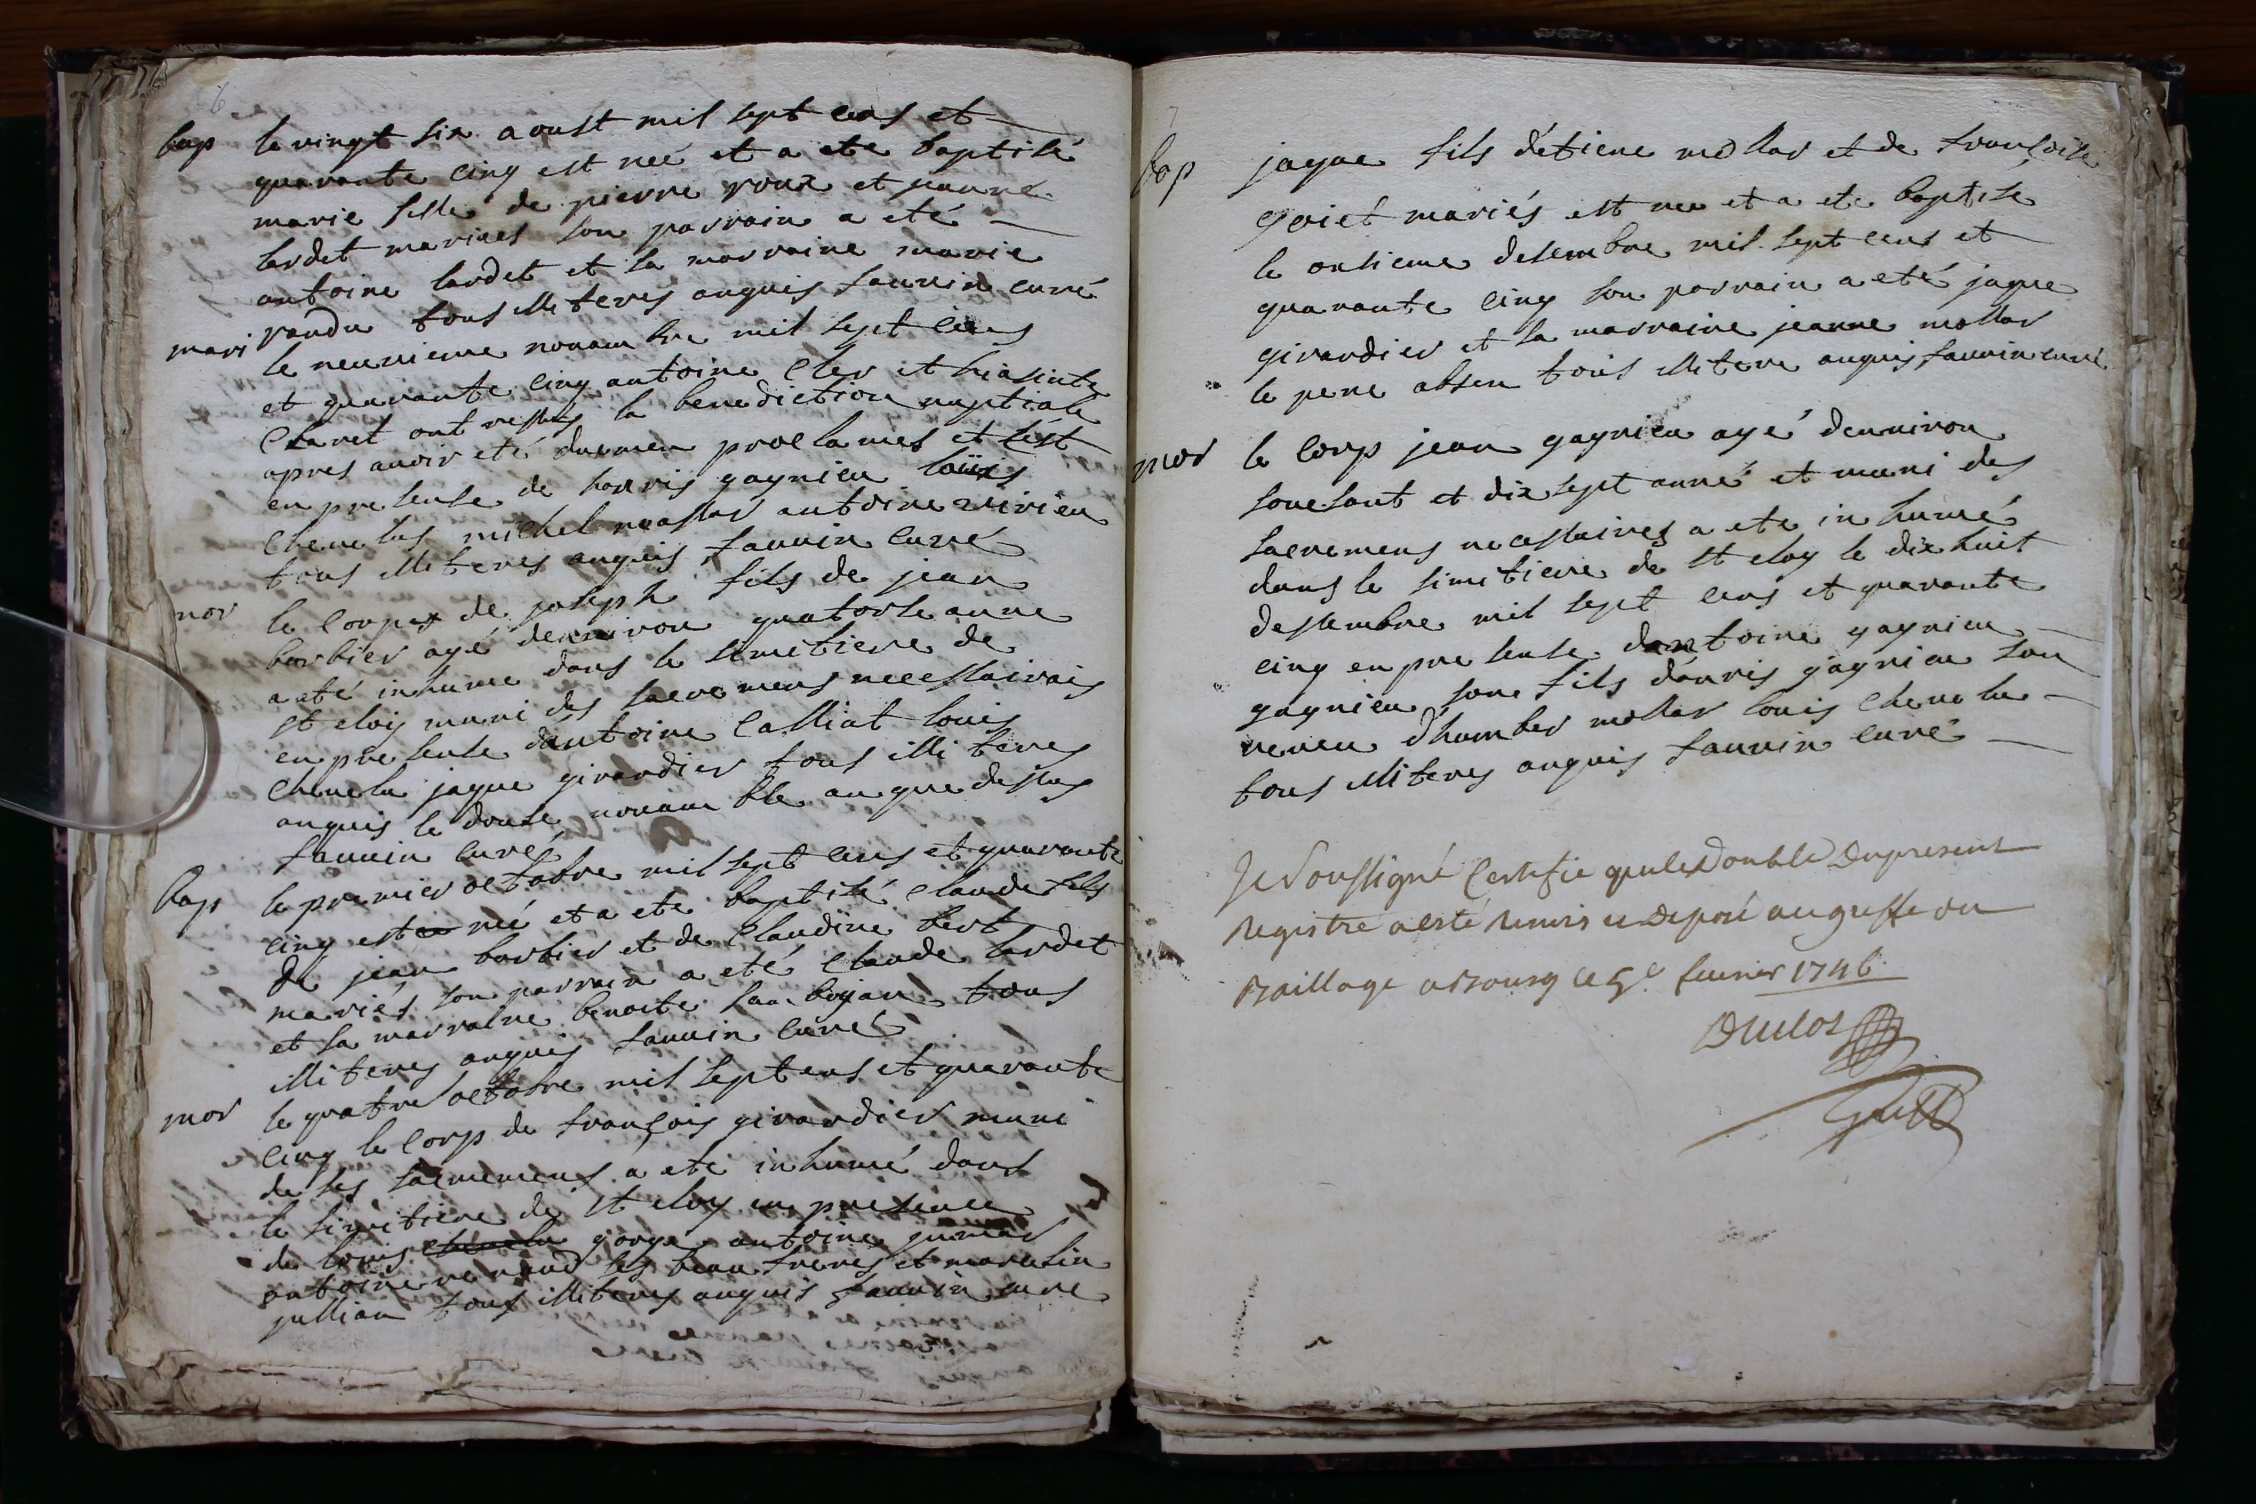 6
bap le vingt six aoust mil sept cens et
quarante cinq est neé et a ete baptisé
marie fille de pierre roux et jeanne
lardet mariees son parrain a eté
antoine lardet et la marraine marie
randu tous illiteres enquis fauvin curé
mari le neuvieme novambre mil sept cens
et quarante cinq antoine cler et hiasinte
claret ont ressus la benediction nuptiale
apres avoir eté duemen proclames et c'est
en presense de hanris gagnieu loüis
chenelus michel mollar antoine ririeu
tous illiteres enquis fauvin curé
mor le corps de joseph fils de jean
barbier agé denviron quatorse anne
a eté inhume dans le simetiere de
st eloy muni des sacremens necessairais
en presense dantoine calliat louis
chenelu jaque girardier tous illiteres
enquis le douse novamble an que dessus
fauvin curé
bap le premier octobre mil sept cens et quarante
cinq est né et a ete baptisé claude fils
de jean barbier et de claudine fert
mariés son parrain a eté claude lardet
et la marraine benoite tous
illiteres enquis fauvin curé
mor le quatre octobre mil sept cens et quarante
cinq le corp de françois girardier muni
de ses sacremens a ete inhumé dans
le simetiere de st eloy en presence
de louis gorge antoine
antoine renaud ses beau freres et
jullian tous illiteres enquis fauvin cure
7
bap jaque fils d'étiene mollar et de françoise
goiet mariés est neu et a ete baptise
le onsieme desembre mil sept cens et
quarante cinq son parrain a eté jaque
girardier et la marraine jeanne mollar
le pere absen tous illitere enquis fauvin curé
mor le corp jean gagnieu agé denviron
souesant et dix sept anné et muni des
sacremens necessaires a ete inhumé
dans le simetiere de st eloy le dix huit
dessembre mil sept cens et quarante
cinq en presense dantoine gagnieu
gagnieu son fils d'anris gagnieu son
neveu d'humber mollar louis chenelu
tous illiteres enquis fauvin curé
Je soussigné Certifie que le Double Du present
Registre a esté Remis et Deposé au greffe du
Baillage a Bourg ce 5e fevrier 1746
Duclos